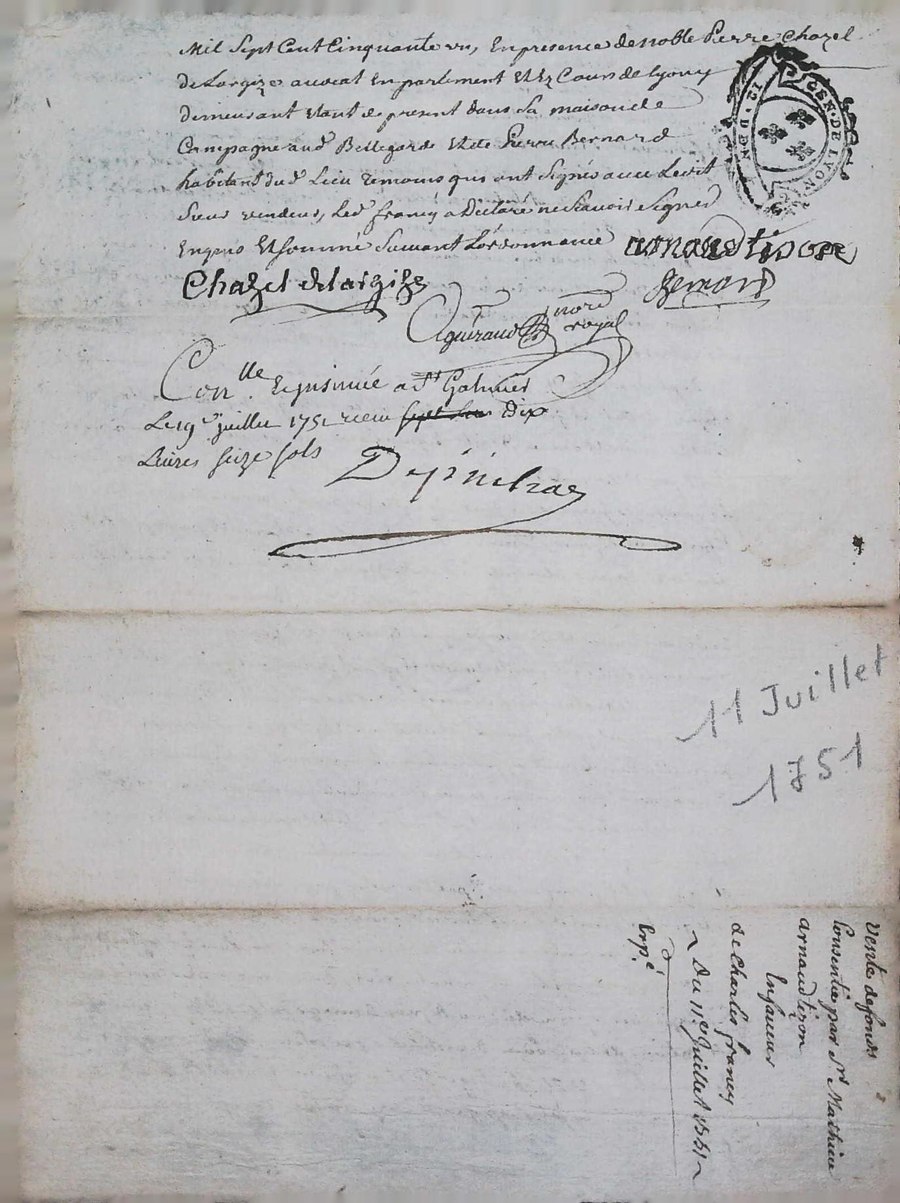 Mil Sept Cent Cinquante un, En presence de noble Pierre Chazel
De Largize avocat En parlement Et Ez Cours de Lyon y
demeurant Etant de present dans sa maison de
Campagne aud Bellegarde Et de Pierre Bernard
habitant dud Lieu temoins qui ont Signé avec Ledit
Sieur vendeur, Led francy a Declaré ne Scavoir Signer
Enquis Et sommé Suivant L'ordonnance arnaud tizon
Chazel de Largize Bernard
Aguiraud nore royal
Conlle Et insinuée a St Galmier
Le 19e juillet 1751 receu Dix
Livres Seize sols
11 Juillet
1751
Vente de fonds
Consentie par Sr. Mathieu
arnaud tizon
En faveur
de Charles francy
~ Du 11e Juillet 1751 ~
Expé.
GEN · DE LYON